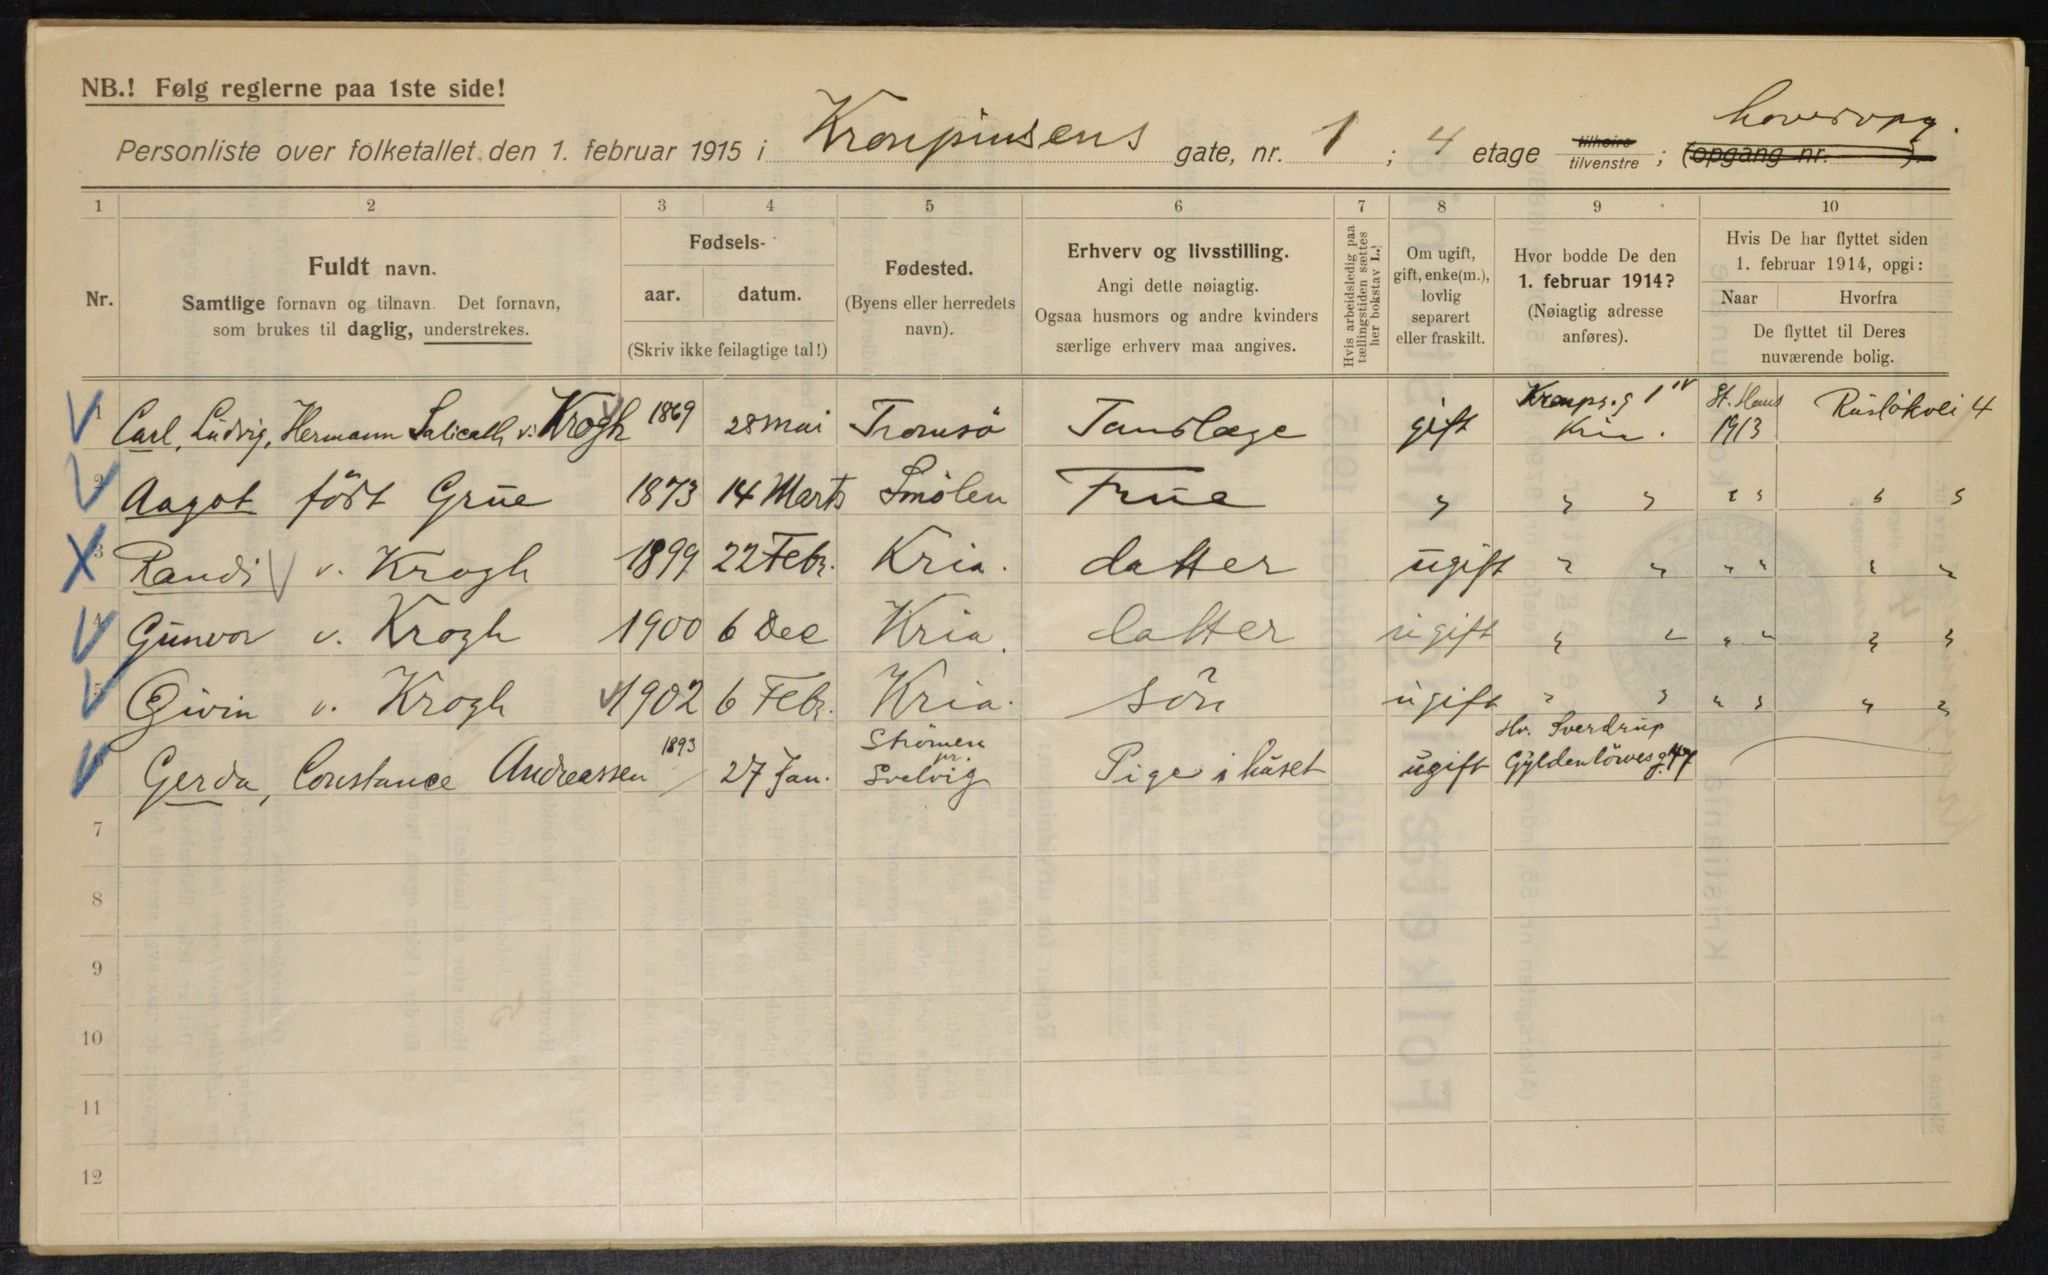 NB.! Følg reglerne paa 1ste side!
Personliste over folketallet den 1. februar 1915 i Kronprinsens gate, nr. 1 ; 4 etage tilhøire tilvenstre ; (opgang nr. ) hovedopg.
1 2 3 4 5 6 7 8 9 10
Nr.
Fuldt navn.
Samtlige fornavn og tilnavn. Det fornavn,
som brukes til daglig, understrekes.
Fødsels-
aar. datum.
(Skriv ikke feilagtige tal!)
Fødested.
(Byens eller herredets
navn).
Erhverv og livsstilling.
Angi dette nøiagtig.
Ogsaa husmors og andre kvinders
særlige erhverv maa angives.
Hvis arbeidsledig paa
tællingstiden sættes
her bokstav L.!
Om ugift,
gift, enke(m.),
lovlig
separert
eller fraskilt.
Hvor bodde De den
1. februar 1914?
(Nøiagtig adresse
anføres).
Hvis De har flyttet siden
1. februar 1914, opgi:
Naar Hvorfra
De flyttet til Deres
nuværende bolig.
1 Carl, Ludvig, Hermann Salicath v. Krogh 1869 28 mai Tromsö Tandlæge gift Kronps.g 1 IV Kria. St. Hans 1913 Rusløkvei 4
2 Aagot födt Grüe 1873 14 Marts Smölen Früe " " " " " " "
3 Randi v. Krogh 1899 22 Febr. Kria. datter ugift " " " " " "
4 Gunvor v. Krogh 1900 6 Dec Kria. datter ugift " " " " " "
5 Eivin v. Krogh 1902 6 Febr. Kria. sön ugift " " " " " "
Gerda, Constance Andreassen 1893 27 Jan. Strömen pr. Svelvig Pige i huset ugift Hr. Sverdrup Gyldenlöwesg. 47
7
8
9
10
11
12